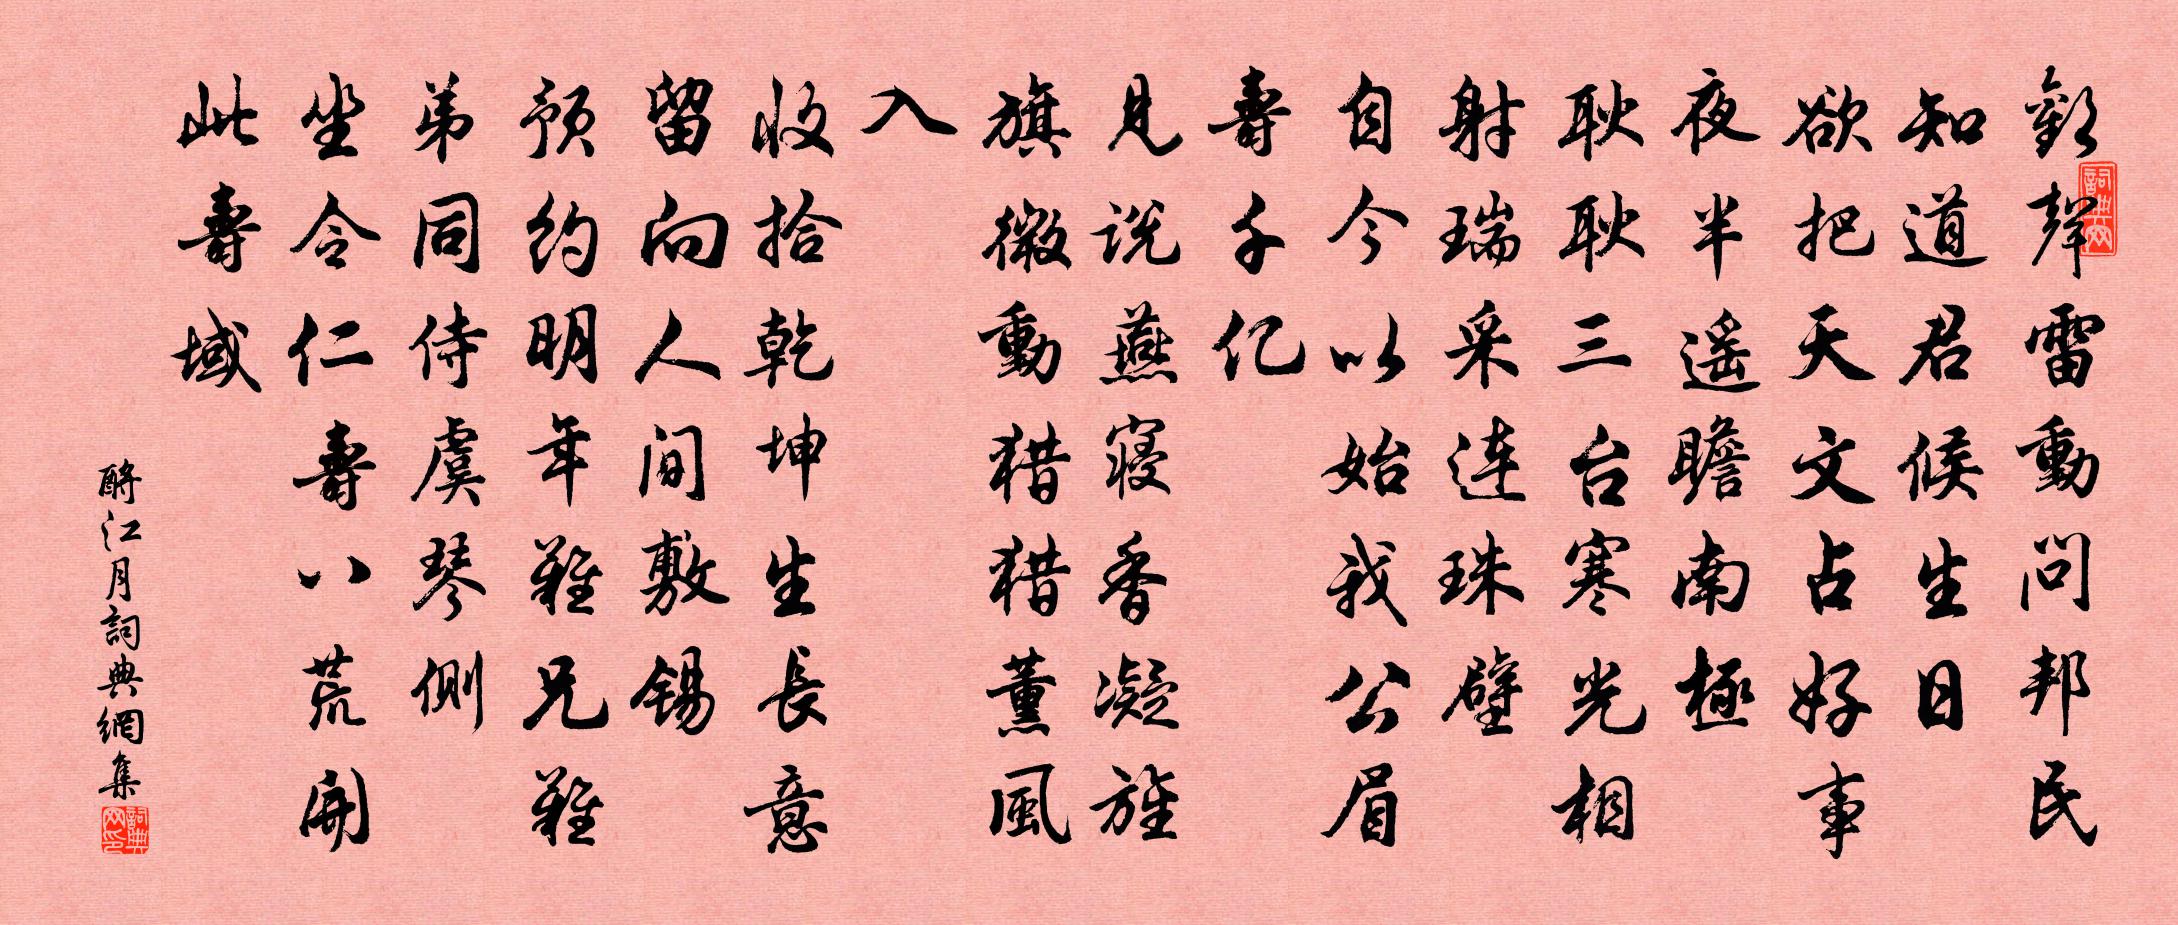 歡聲雷動問邦民
知道君候生日
欲把天文占好事
夜半遥瞻南極
耿耿三台寒光相
射瑞采连珠璧
自今以始我公眉
壽千亿
見说燕寝香凝旌
旗微動猎猎薰風
入
收拾乾坤生長意
留向人间敷锡
预约明年難兄難
弟同侍虞琴側
坐令仁壽八荒開
此壽域
酹江月詞典網集
詞典网
詞典网印